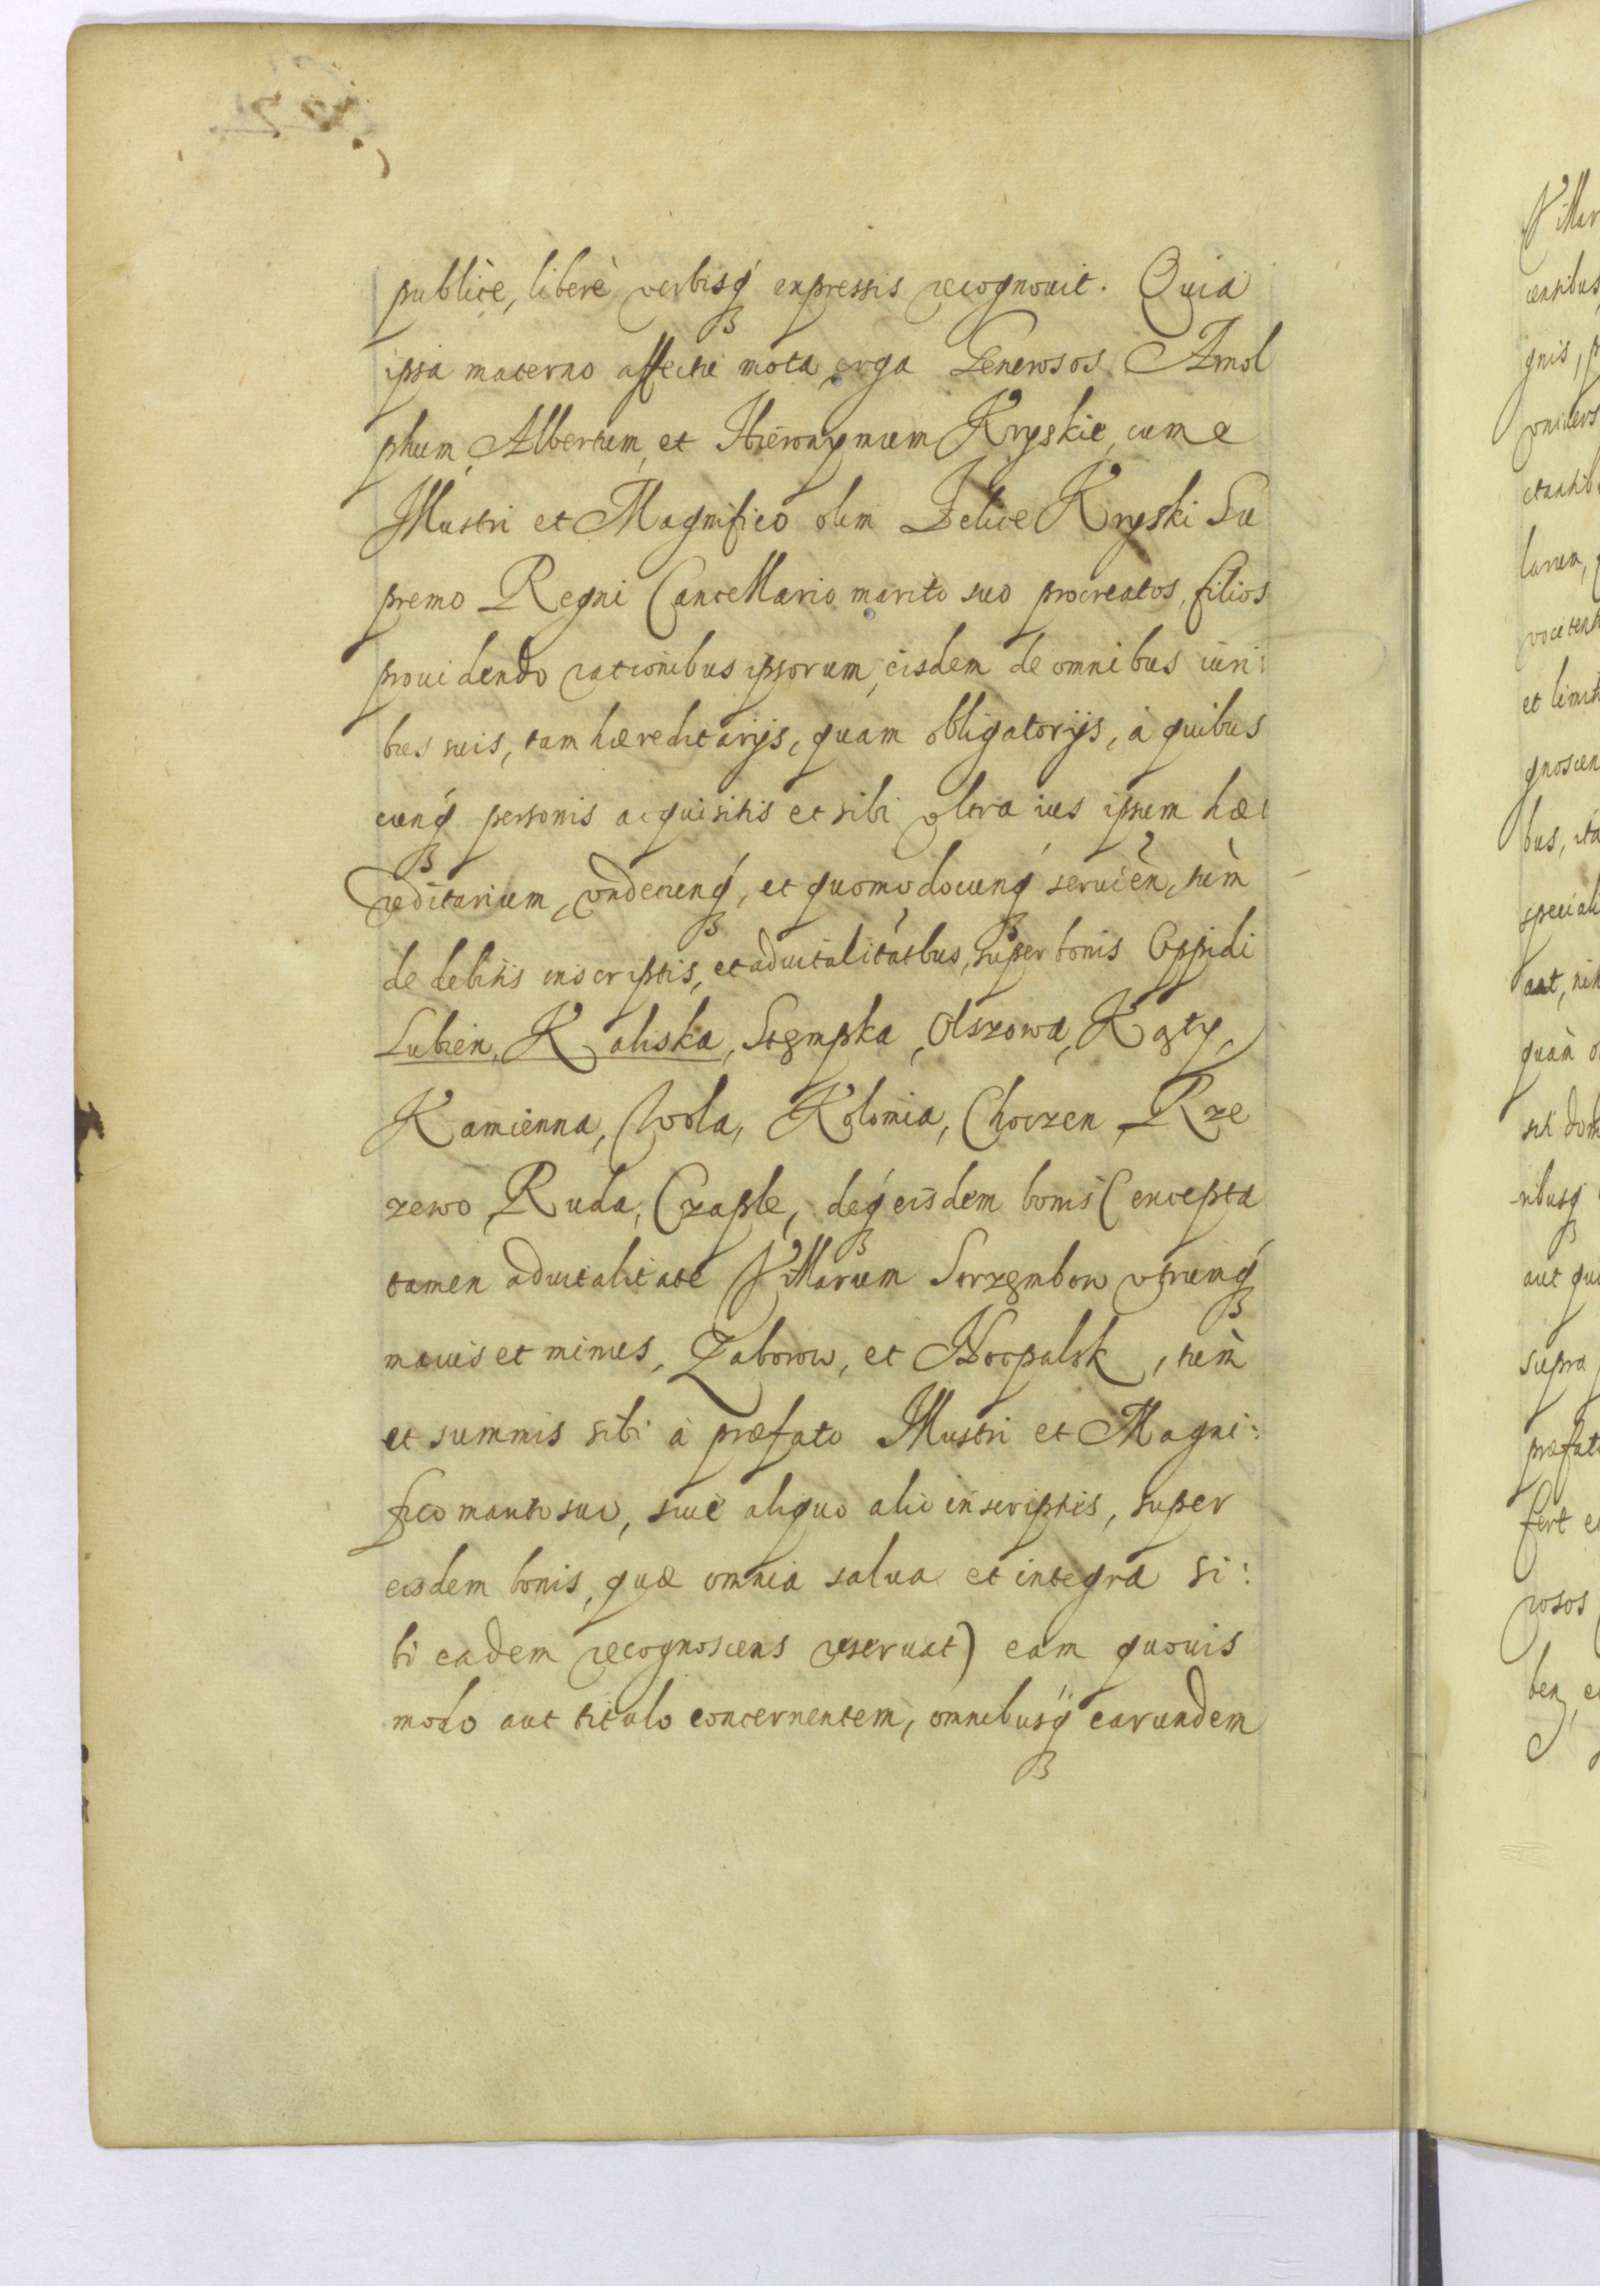 publicè, liberè verbisq́ expressis recognouit. Quia
ipsa materno affectu mota erga Generosos Arnol
phum, Albertum, et Hieronymum Kryskie, cum e
Illustri et Magnifico olim Felice Kryski Su
premo Regni Cancellario marito suo procreatos, filios
prouidendo rationibus ipsorum, eisdem de omnibus iuri:
bus suis, tam hæreditarijs, quam obligatorijs, à quibus
cunq́ personis acquisitis et sibi vltra ius ipsum hæ:
reditarium, vndecunq́, et quomodocunq́ seruień, tùm
de debitis inscriptis, et aduitalitatbus, super bonis Oppidi
Lubień, Kaliska, Stępka, Olszowa, Kąty,
Kamienna, Wola, Kolonia, Choczen, Rze
zewo, Ruda, Czaple, deq́ eisdem bonis (excepta
tamen aduitalitate Villarum Strzembow vtrunq́
maius et minus, Zaborow, et, tùm
et summis sibi à præfato Illustri et Magni:
fico marito suo, siue aliquo alio inscriptis, super
eisdem bonis, quæ omnia salua et integra si:
bi eadem recognoscens reseruat) eam quouis
modo aut titulo concernentem, omnibusq́ earundem
Villar
censibus
gnis, p
vniuers
larum,
et limit
gnoscen
bus, ita
speciali
aut, nih
quàm o
aut qu
supra
præfat
fert e
rosos